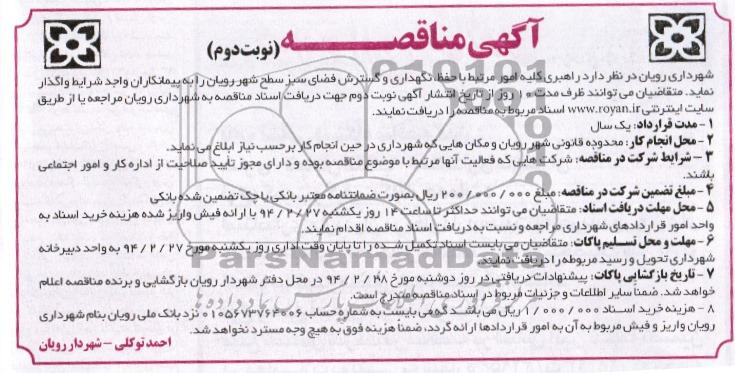 آگهی مناقصه (نوبت دوم)
شهرداری رویان در نظر دارد راهبری کلیه امور مرتبط با حفظ، نگهداری و گسترش فضای سبز سطح شهر رویان را به پیمانکاران واجد شرایط واگذار
نماید. متقاضیان می توانند ظرف مدت ۱۰ روز از تاریخ انتشار آگهی نوبت دوم جهت دریافت اسناد مناقصه به شهرداری رویان مراجعه یا از طریق
سایت اینترنتی www.royan.ir اسناد مربوط به مناقصه را دریافت نمایند.
۱ - مدت قرارداد: یک سال
۲ - محل انجام کار: محدوده قانونی شهر رویان و مکان هایی که شهرداری در حین انجام کار برحسب نیاز ابلاغ می نماید.
۳ - شرایط شرکت در مناقصه: شرکت هایی که فعالیت آنها مرتبط با موضوع مناقصه بوده و دارای مجوز تأیید صلاحیت از اداره کار و امور اجتماعی
باشند.
۴ - مبلغ تضمین شرکت در مناقصه: مبلغ ۲۰۰/۰۰۰/۰۰۰ ریال بصورت ضمانتنامه معتبر بانکی یا چک تضمین شده بانکی
۵ - محل مهلت دریافت اسناد: متقاضیان می توانند حداکثر تا ساعت ۱۴ روز یکشنبه ۹۴/۲/۲۷ با ارائه فیش واریز شده هزینه خرید اسناد به
واحد امور قراردادهای شهرداری مراجعه و نسبت به دریافت اسناد مناقصه اقدام نمایند.
۶ - مهلت و محل تسلیم پاکات: متقاضیان می بایست اسناد تکمیل شده را تا پایان وقت اداری روز یکشنبه مورخ ۹۴/۲/۲۷ به واحد دبیرخانه
شهرداری تحویل و رسید مربوطه را دریافت نمایند.
۷ - تاریخ بازگشایی پاکات: پیشنهادات دریافتی در روز دوشنبه مورخ ۹۴/۲/۲۸ در محل دفتر شهردار رویان بازگشایی و برنده مناقصه اعلام
خواهد شد. ضمناً سایر اطلاعات و جزئیات مربوط در اسناد مناقصه مندرج است.
۸ - هزینه خرید اسناد ۱/۰۰۰/۰۰۰ ریال می باشد که می بایست به شماره حساب ۰۱۰۵۶۷۳۷۶۴۰۰۶ نزد بانک ملی رویان بنام شهرداری
رویان واریز و فیش مربوط به آن به امور قراردادها ارائه گردد، ضمنا هزینه فوق به هیچ وجه مسترد نخواهد شد.
احمد توکلی - شهردار رویان
ParsNamadData